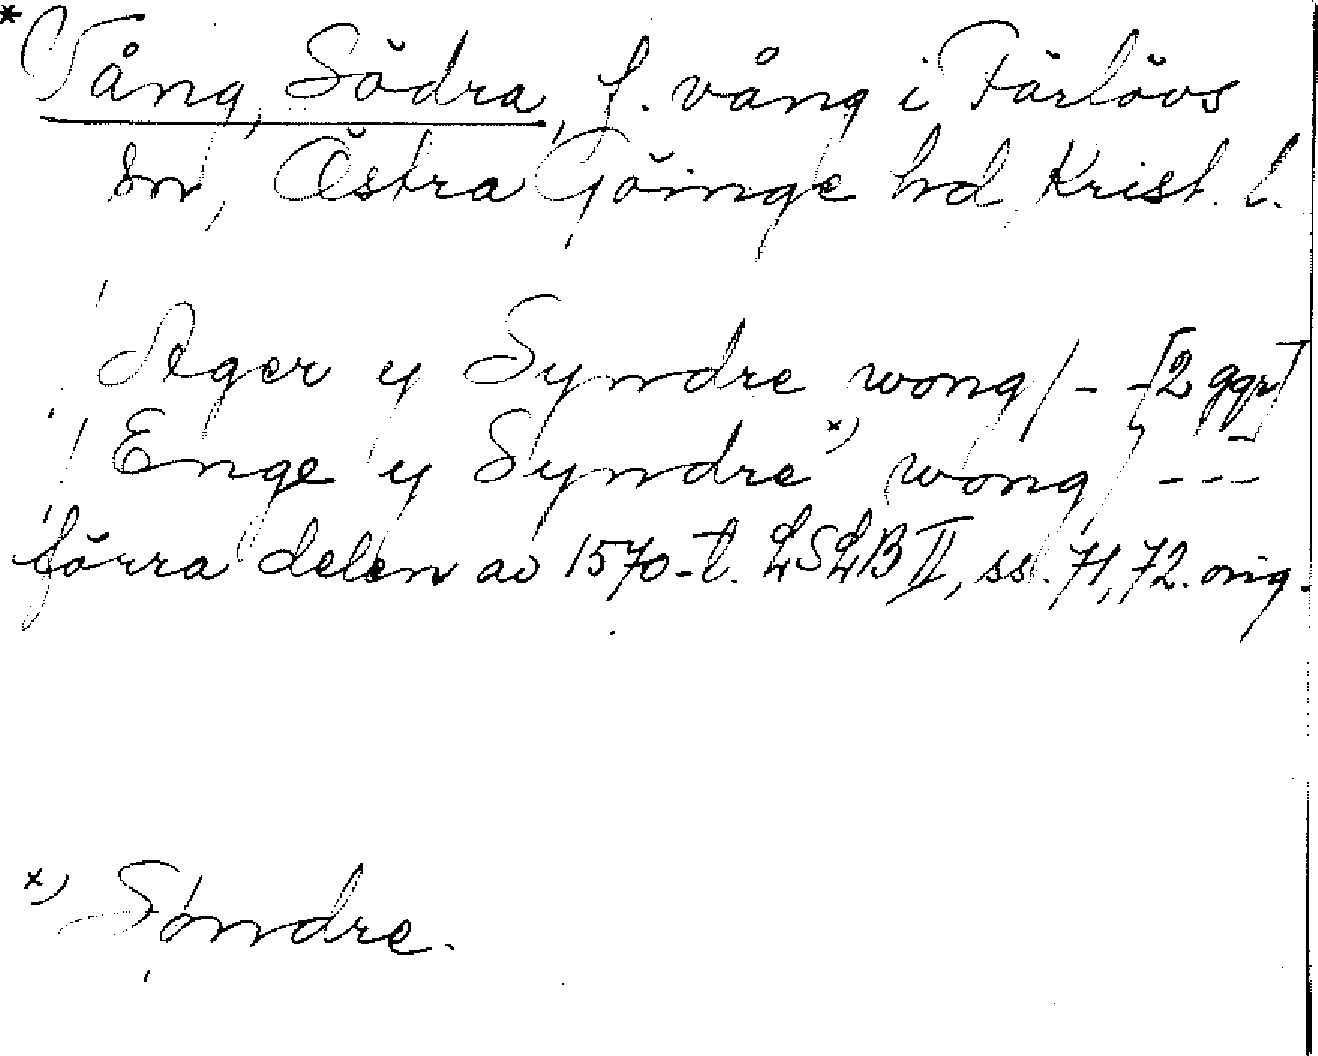 * Vång, Södra, f. vång i Färlövs
sn, Östra Göinge hd, Krist. l.
Ager y Syndre wong / - - [2 ggr]
Enge y Syndre x) wong / ---
förra delen av 1570-t. LSLB II, ss. 71, 72. orig.
x) Søndre.